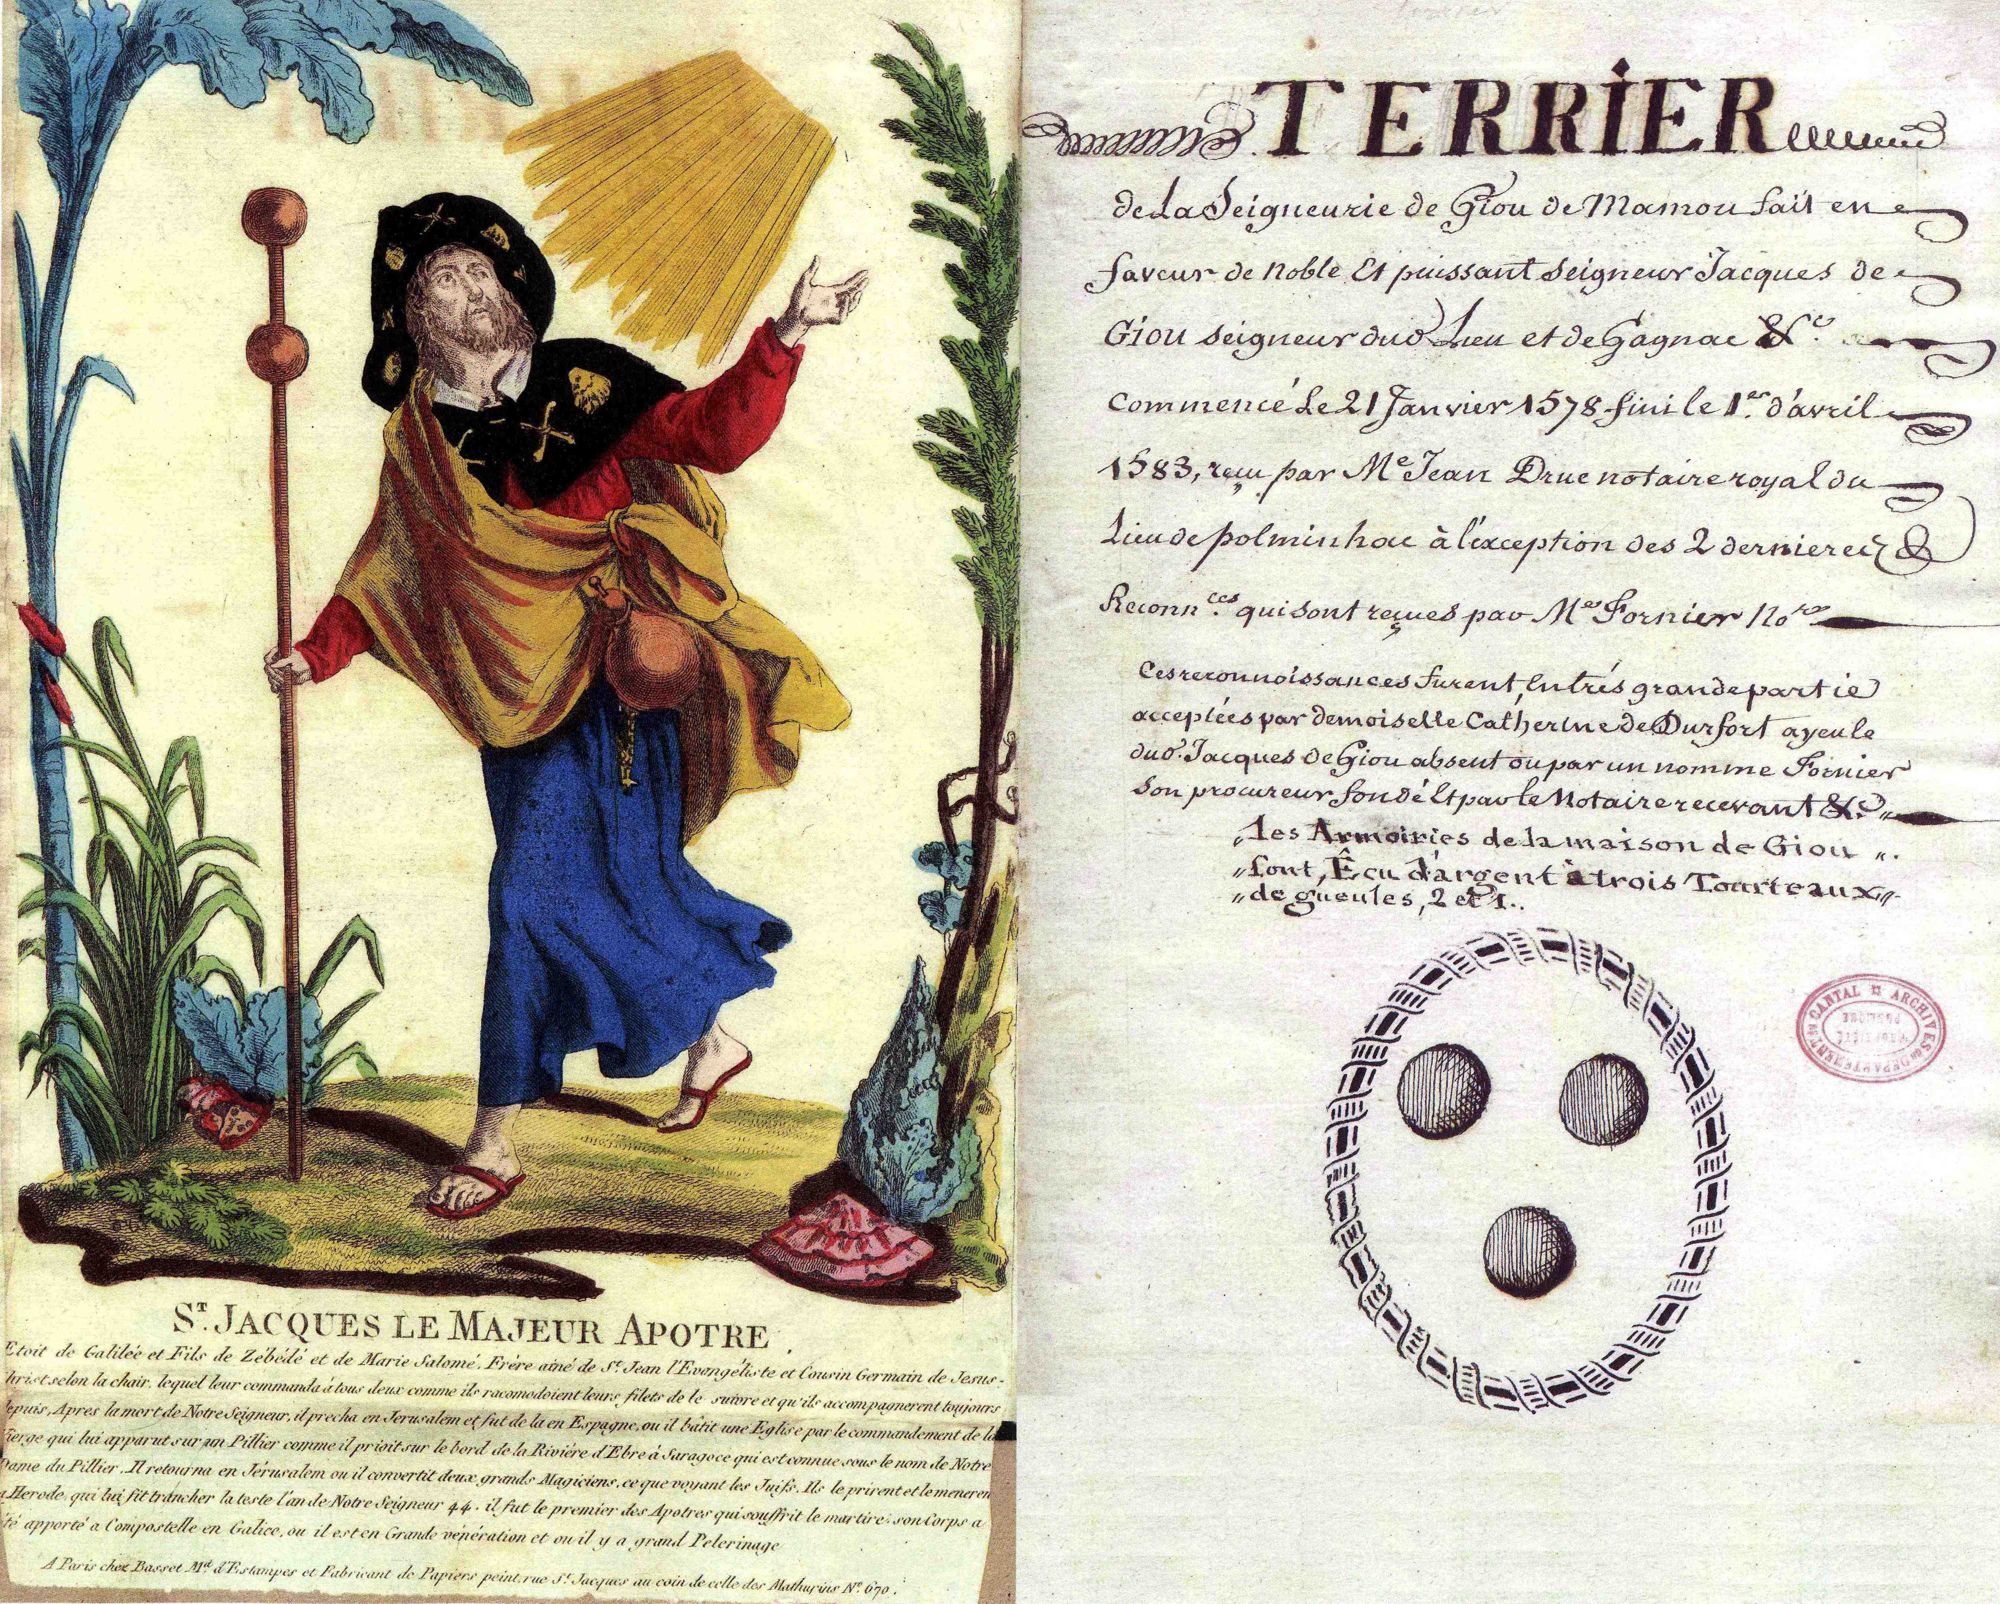 St. JACQUES LE MAJEUR APOTRE.
Etoit de Galilée et Fils de Zébédé et de Marie Salomé, Frère ainé de St. Jean l'Evangéliste et Cousin Germain de Jesus-
hrist selon la chair, lequel leur commanda à tous deux comme ils racomodoient leurs filets de le suivre et qu'ils accompagnerent toujours
depuis, Apres la mort de Notre Seigneur, il precha en Jerusalem et fut de la en Espagne, ou il bâtit une Eglise par le commandement de la
Vierge qui lui apparut sur un Pillier comme il prioit sur le bord de la Rivière d'Ebre à Saragoce qui est connue sous le nom de Notre
Dame du Pillier. Il retourna en Jérusalem ou il convertit deux grands Magiciens, ce que voyant les Juifs, Ils le prirent et le menerent
a Herode, qui lui fit trancher la teste l'an de Notre Seigneur 44. il fut le premier des Apotres qui souffrit le martire, son Corps a
été apporté a Compostelle en Galice, ou il est en Grande vénération et ou il y a grand Pelerinage
A Paris chez Basset Md. d'Estampes et Fabricant de Papiers peint, rue St. Jacques au coin de celle des Mathurins No. 670.
TERRIER
de La Seigneurie de Giou de Mamou fait en
faveur de noble Et puissant Seigneur Jacques de
Giou seigneur dud. Lieu et de Gagnac &c.
Commencé Le 21 Janvier 1578 fini le 1er. d'avril
1583, reçu par Me Jean Drue notaire royal du
Lieu de polminhac à l'éxception des 2 dernieres
Reconn.ces qui sont reçues par Me Fornier No.re
Ces reconnoissances furent, En trés grande partie
acceptées par demoiselle Catherine de Durfort ayeule
dud. Jacques de Giou absent ou par un nomme Fornier
Son procureur fondé Et par le Notaire recevant &c.
„Les Armoiries de la maison de Giou „.
„sont, Écu d'argent à trois Tourteaux„.
„de gueules, 2 et 1..
ARCHIVES DEPARTEMENT. DU CANTAL